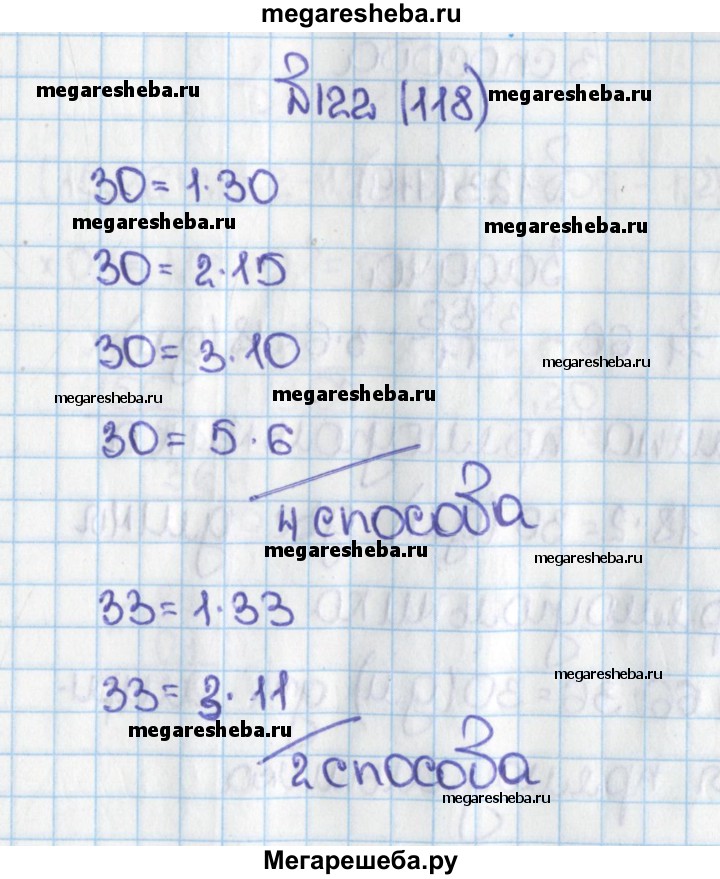 megaresheba.ru
№122 (118)
megaresheba.ru
megaresheba.ru
30 = 1·30
megaresheba.ru
megaresheba.ru
30 = 2·15
30 = 3·10
megaresheba.ru
megaresheba.ru
megaresheba.ru
30 = 5·6
4 способа
megaresheba.ru
megaresheba.ru
33 = 1·33
33 = 3·11
megaresheba.ru
megaresheba.ru
2 способа
megaresheba.ru
Мегарешеба.ру